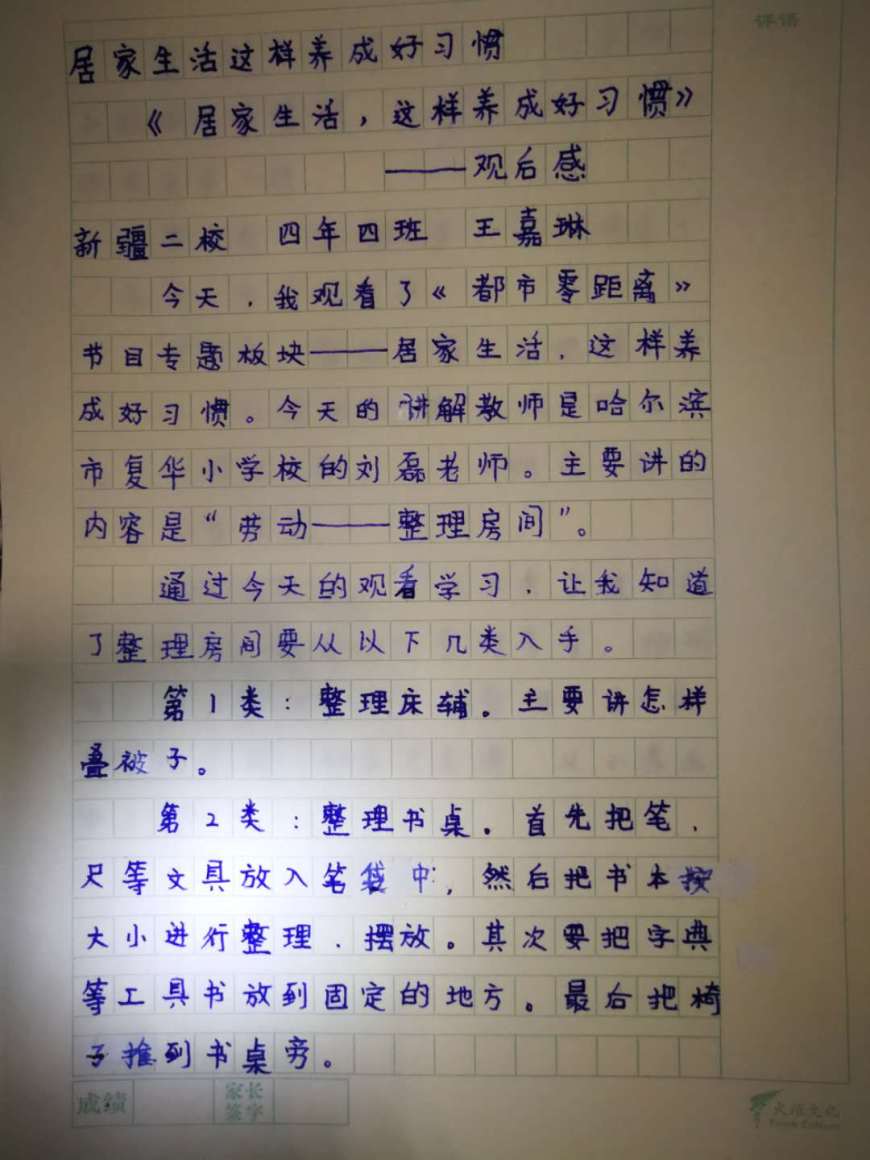 评语
居家生活这样养成好习惯
《居家生活，这样养成好习惯》
——观后感
新疆二校 四年四班 王嘉琳
今天，我观看了《都市零距离》
节目专题板块——居家生活，这样养
成好习惯。今天的讲解教师是哈尔滨
市复华小学校的刘磊老师。主要讲的
内容是“劳动——整理房间”。
通过今天的观看学习，让我知道
了整理房间要从以下几类入手。
第1类：整理床辅。主要讲怎样
叠被子。
第2类：整理书桌。首先把笔、
尺等文具放入笔袋中，然后把书本按
大小进行整理、摆放。其次要把字典
等工具书放到固定的地方。最后把椅
子推到书桌旁。
成绩 家长签字